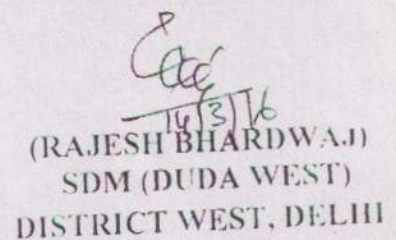 14/3/16
(RAJESH BHARDWAJ)
SDM (DUDA WEST)
DISTRICT WEST, DELHI